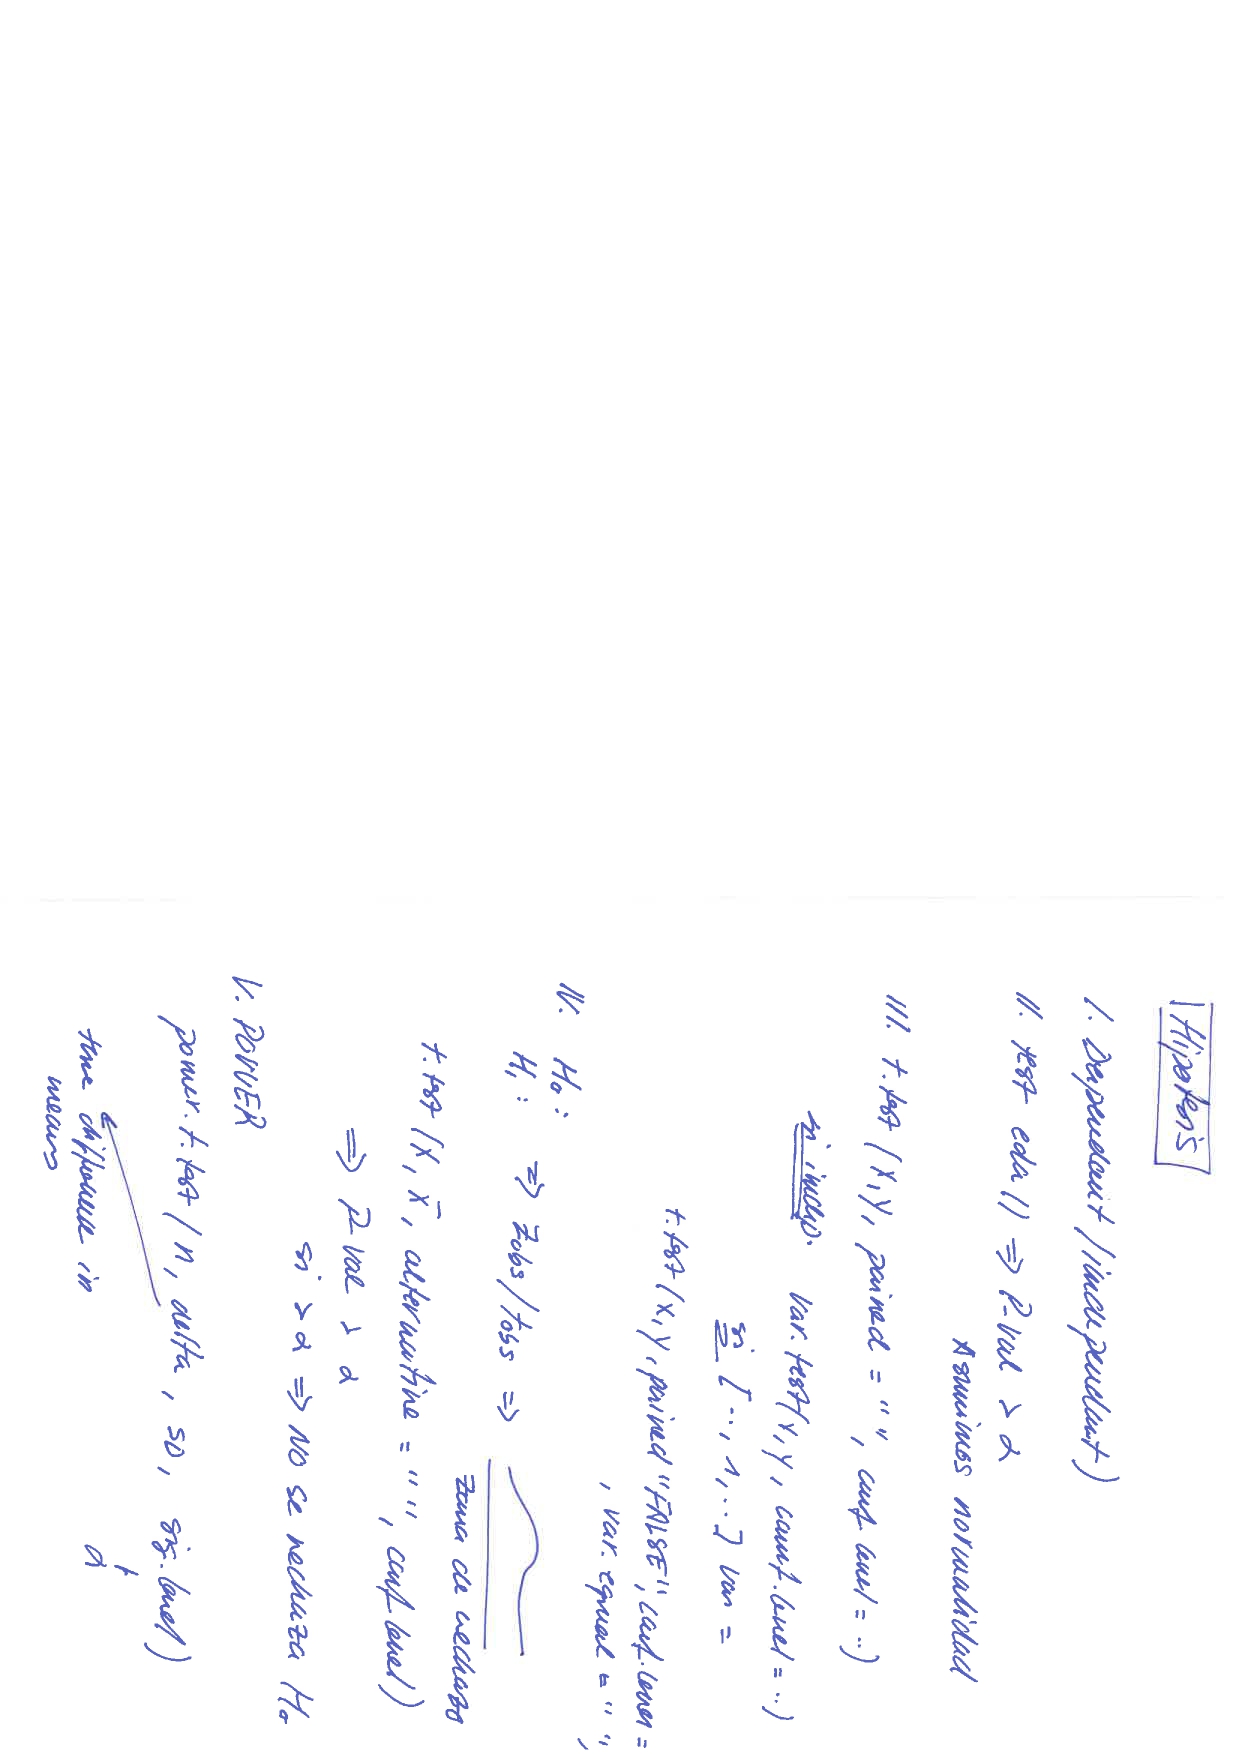 Hipotesis
I. Dependent / independent)
II. test eda () => P-val > α
Asumimos normalidad
III. t.test (x, y, paired = " ", conf level = ..)
si indep. var.test(x, y, conf.level = ..)
si [ .., 1, .. ] var =
t.test (x, y, paired "FALSE", conf.level =
, var.equal = " ",
IV. H₀:
H₁: => Zobs / tobs =>
zona de rechazo
t.test (x, x̄, alternative = " ", conf level)
=> P-val > α
si > α => No se rechaza H₀
V. POWER
power.t.test (n, delta, SD, sig.level)
α
true difference in
means